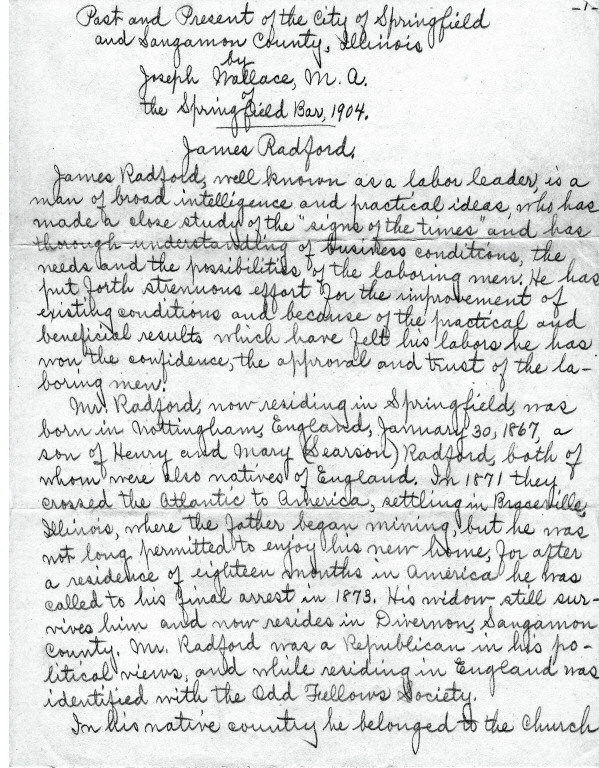 -1-
Past and Present of the City of Springfield
and Sangamon County, Illinois
by
Joseph Wallace, M. A.
of
the Springfield Bar, 1904.
James Radford.
James Radford, well known as a labor leader, is a
man of broad intelligence and practical ideas, who has
made a close study of the "signs of the times" and has
thorough understanding of business conditions, the
needs and the possibilities of the laboring men. He has
put forth strenuous effort for the improvement of
existing conditions and because of the practical and
beneficial results which have felt his labors he has
won the confidence, the approval and trust of the la-
boring men.
Mr. Radford, now residing in Springfield, was
born in Nottingham, England, January 30, 1867, a
son of Henry and Mary (Searson) Radford, both of
whom were also natives of England. In 1871 they
crossed the Atlantic to America, settling in Braceville,
Illinois, where the father began mining, but he was
not long permitted to enjoy his new home, for after
a residence of eighteen months in America he was
called to his final arrest in 1873. His widow still sur-
vives him and now resides in Divernon, Sangamon
County. Mr. Radford was a Republican in his po-
litical views, and while residing in England was
identified with the Odd Fellows Society.
In his native country he belonged to the Church